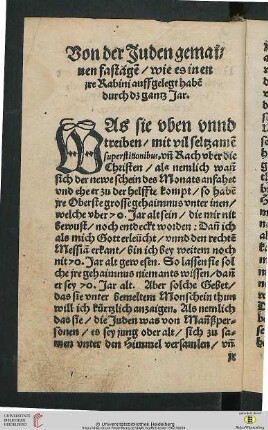 Von der Juden gemai/
nen fastägē / wie es inen
jre Rabini auffgelegt habē
durch dz gantz Jar.
WAs sie vben vnnd
treiben / mit vil seltzamē
superstitionibus, vñ Rach vber die
Christen / als nemlich wañ
sich der newe schein des Monats anfahet
vnd ehe er zu der helffte kompt / so habē
jre Oberste grosse gehaimnus vnter inen /
welche vber 70. Jar alt sein / die mir nit
bewust / noch entdeckt worden: Dañ ich
als mich Gott erleücht / vnnd den rechtē
Messiā erkant / bin ich bey weitem noch
nit 70. Jar alt gewesen. So lassen sie sol
che jre gehaimnus niemants wissen / dañ
er sey 70. Jar alt. Aber solche Gebet /
das sie vnter bemeltem Monschein thun
will ich kürtzlich anzaigen. Als nemlich
das sie / die Juden was von Mañsper=
sonen / es sey jung oder alt / sich zu sa=
men vnter den Himmel versamlen / vñ
jr
© Universitätsbibliothek Heidelberg